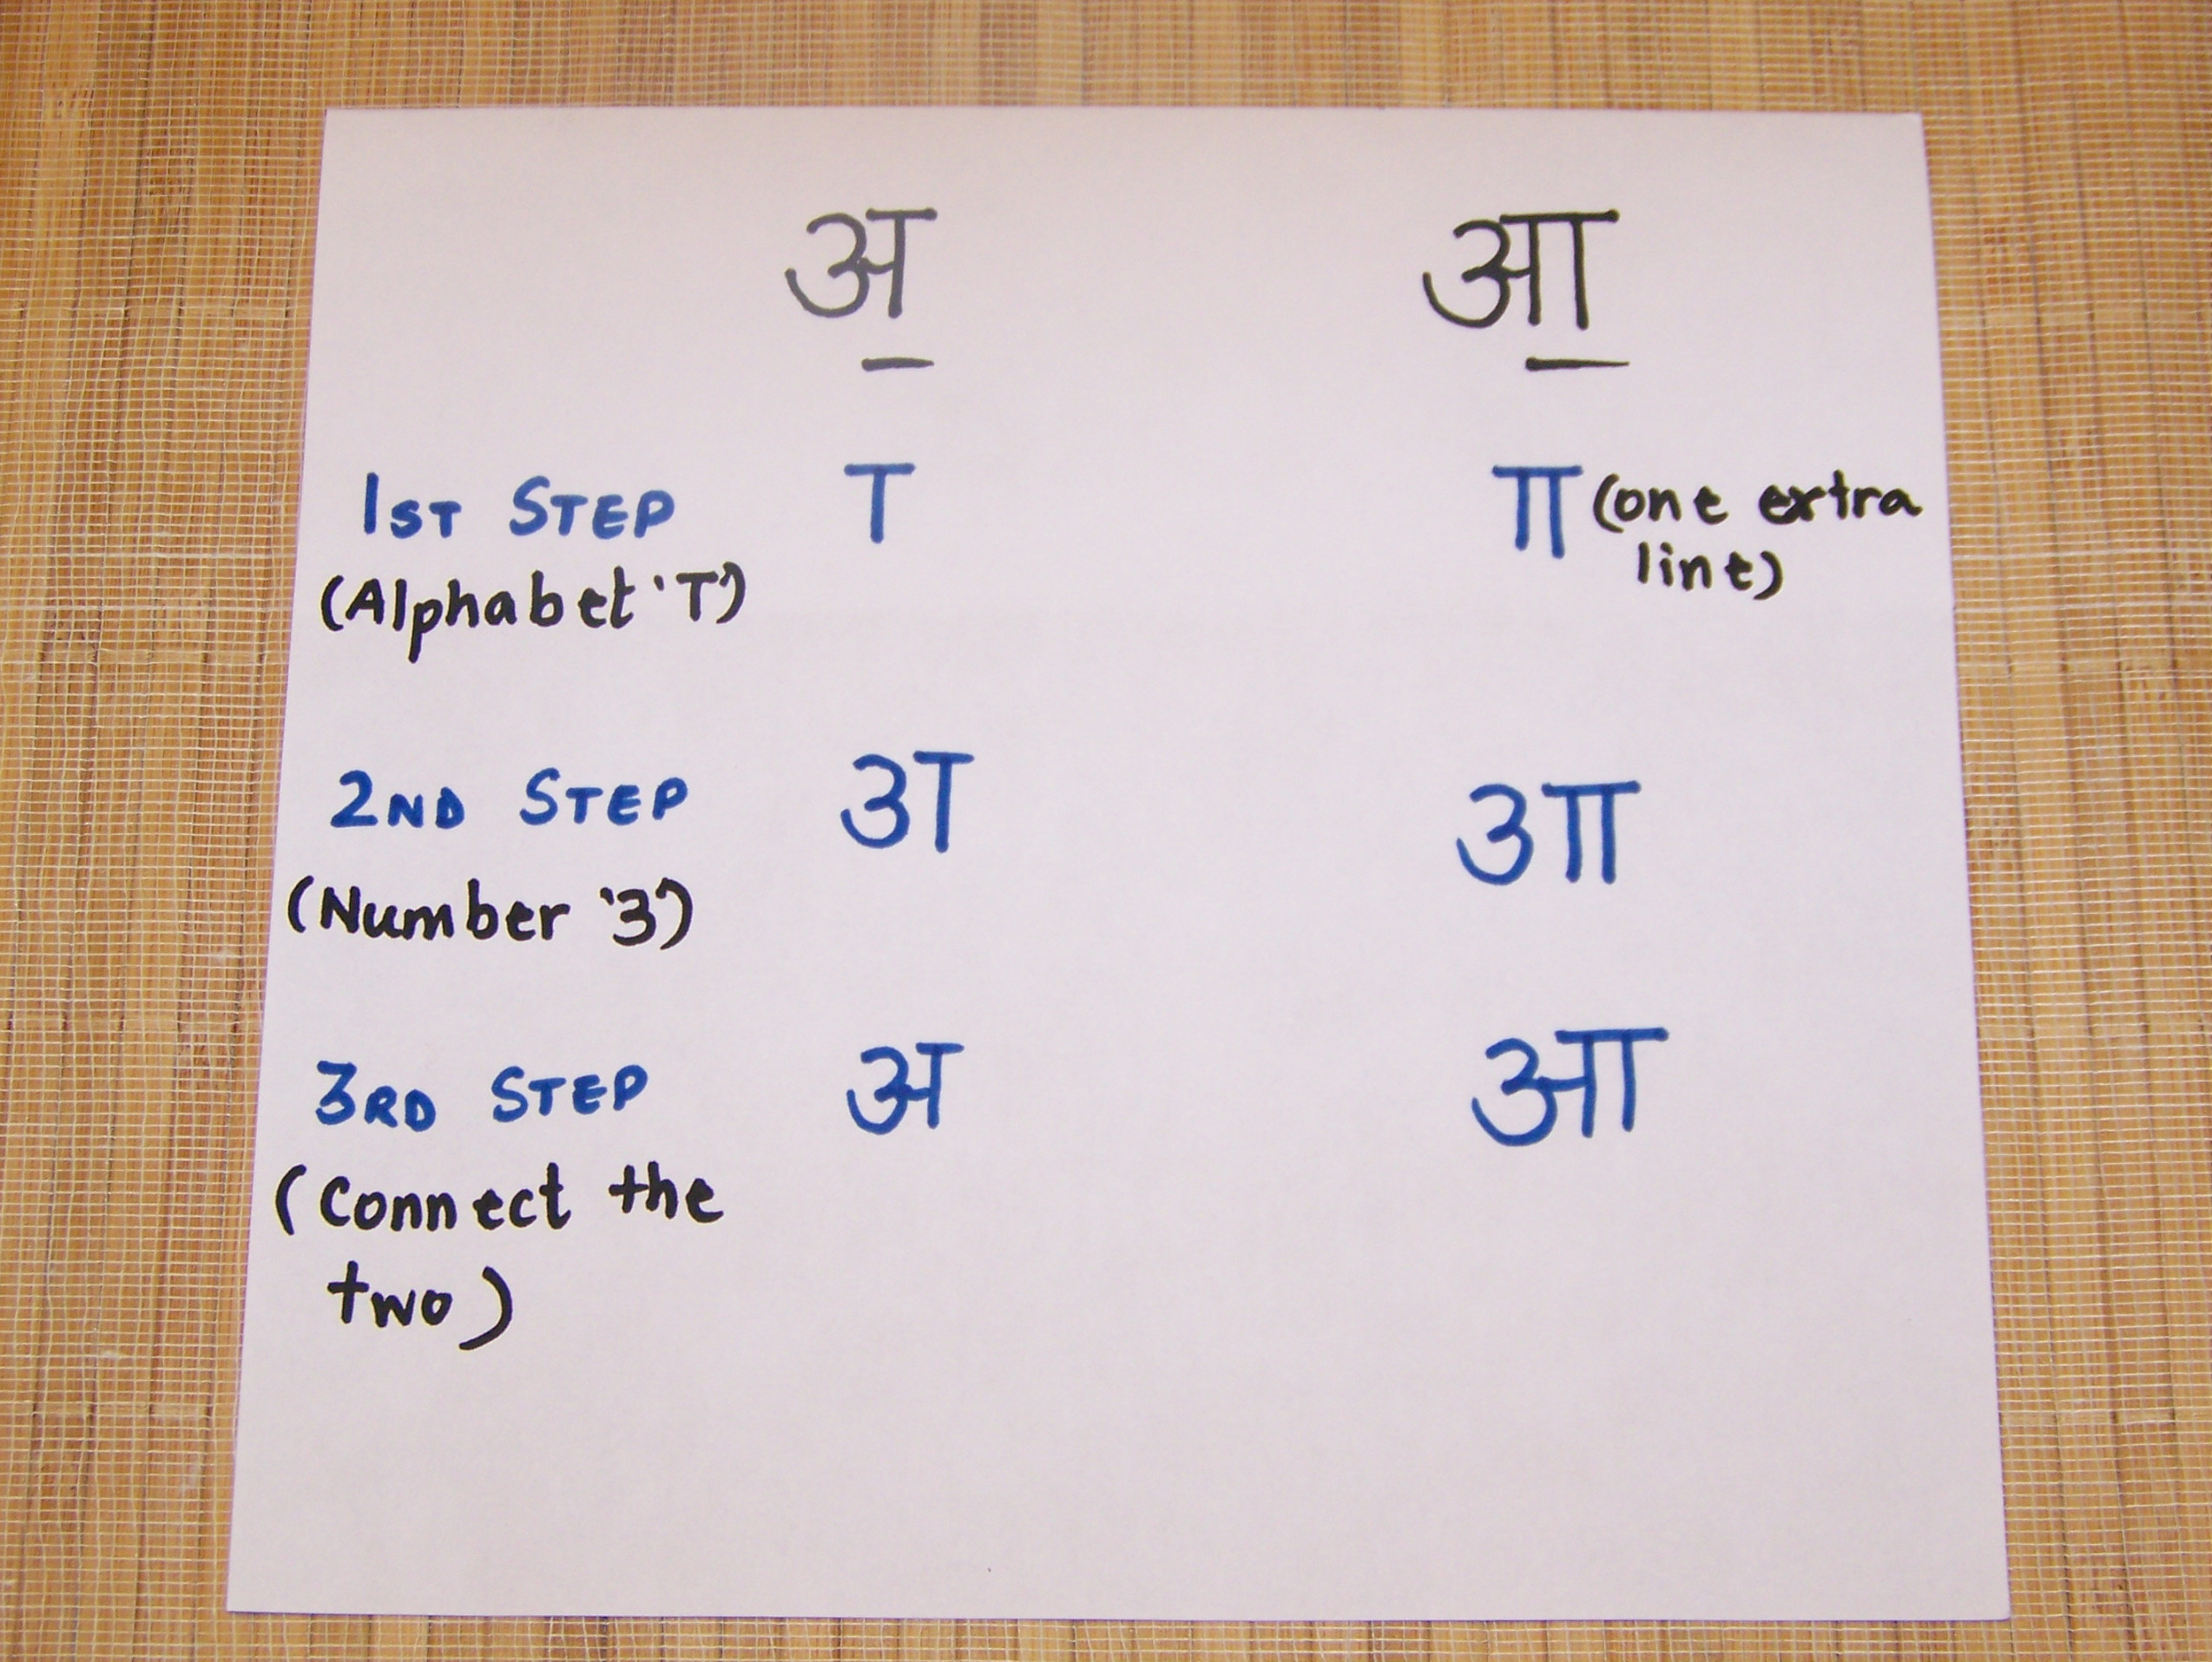 अ आ
1ST STEP T TT (one extra
(Alphabet 'T') line)
2ND STEP 3T 3TT
(Number '3')
3RD STEP अ आ
(Connect the
two)